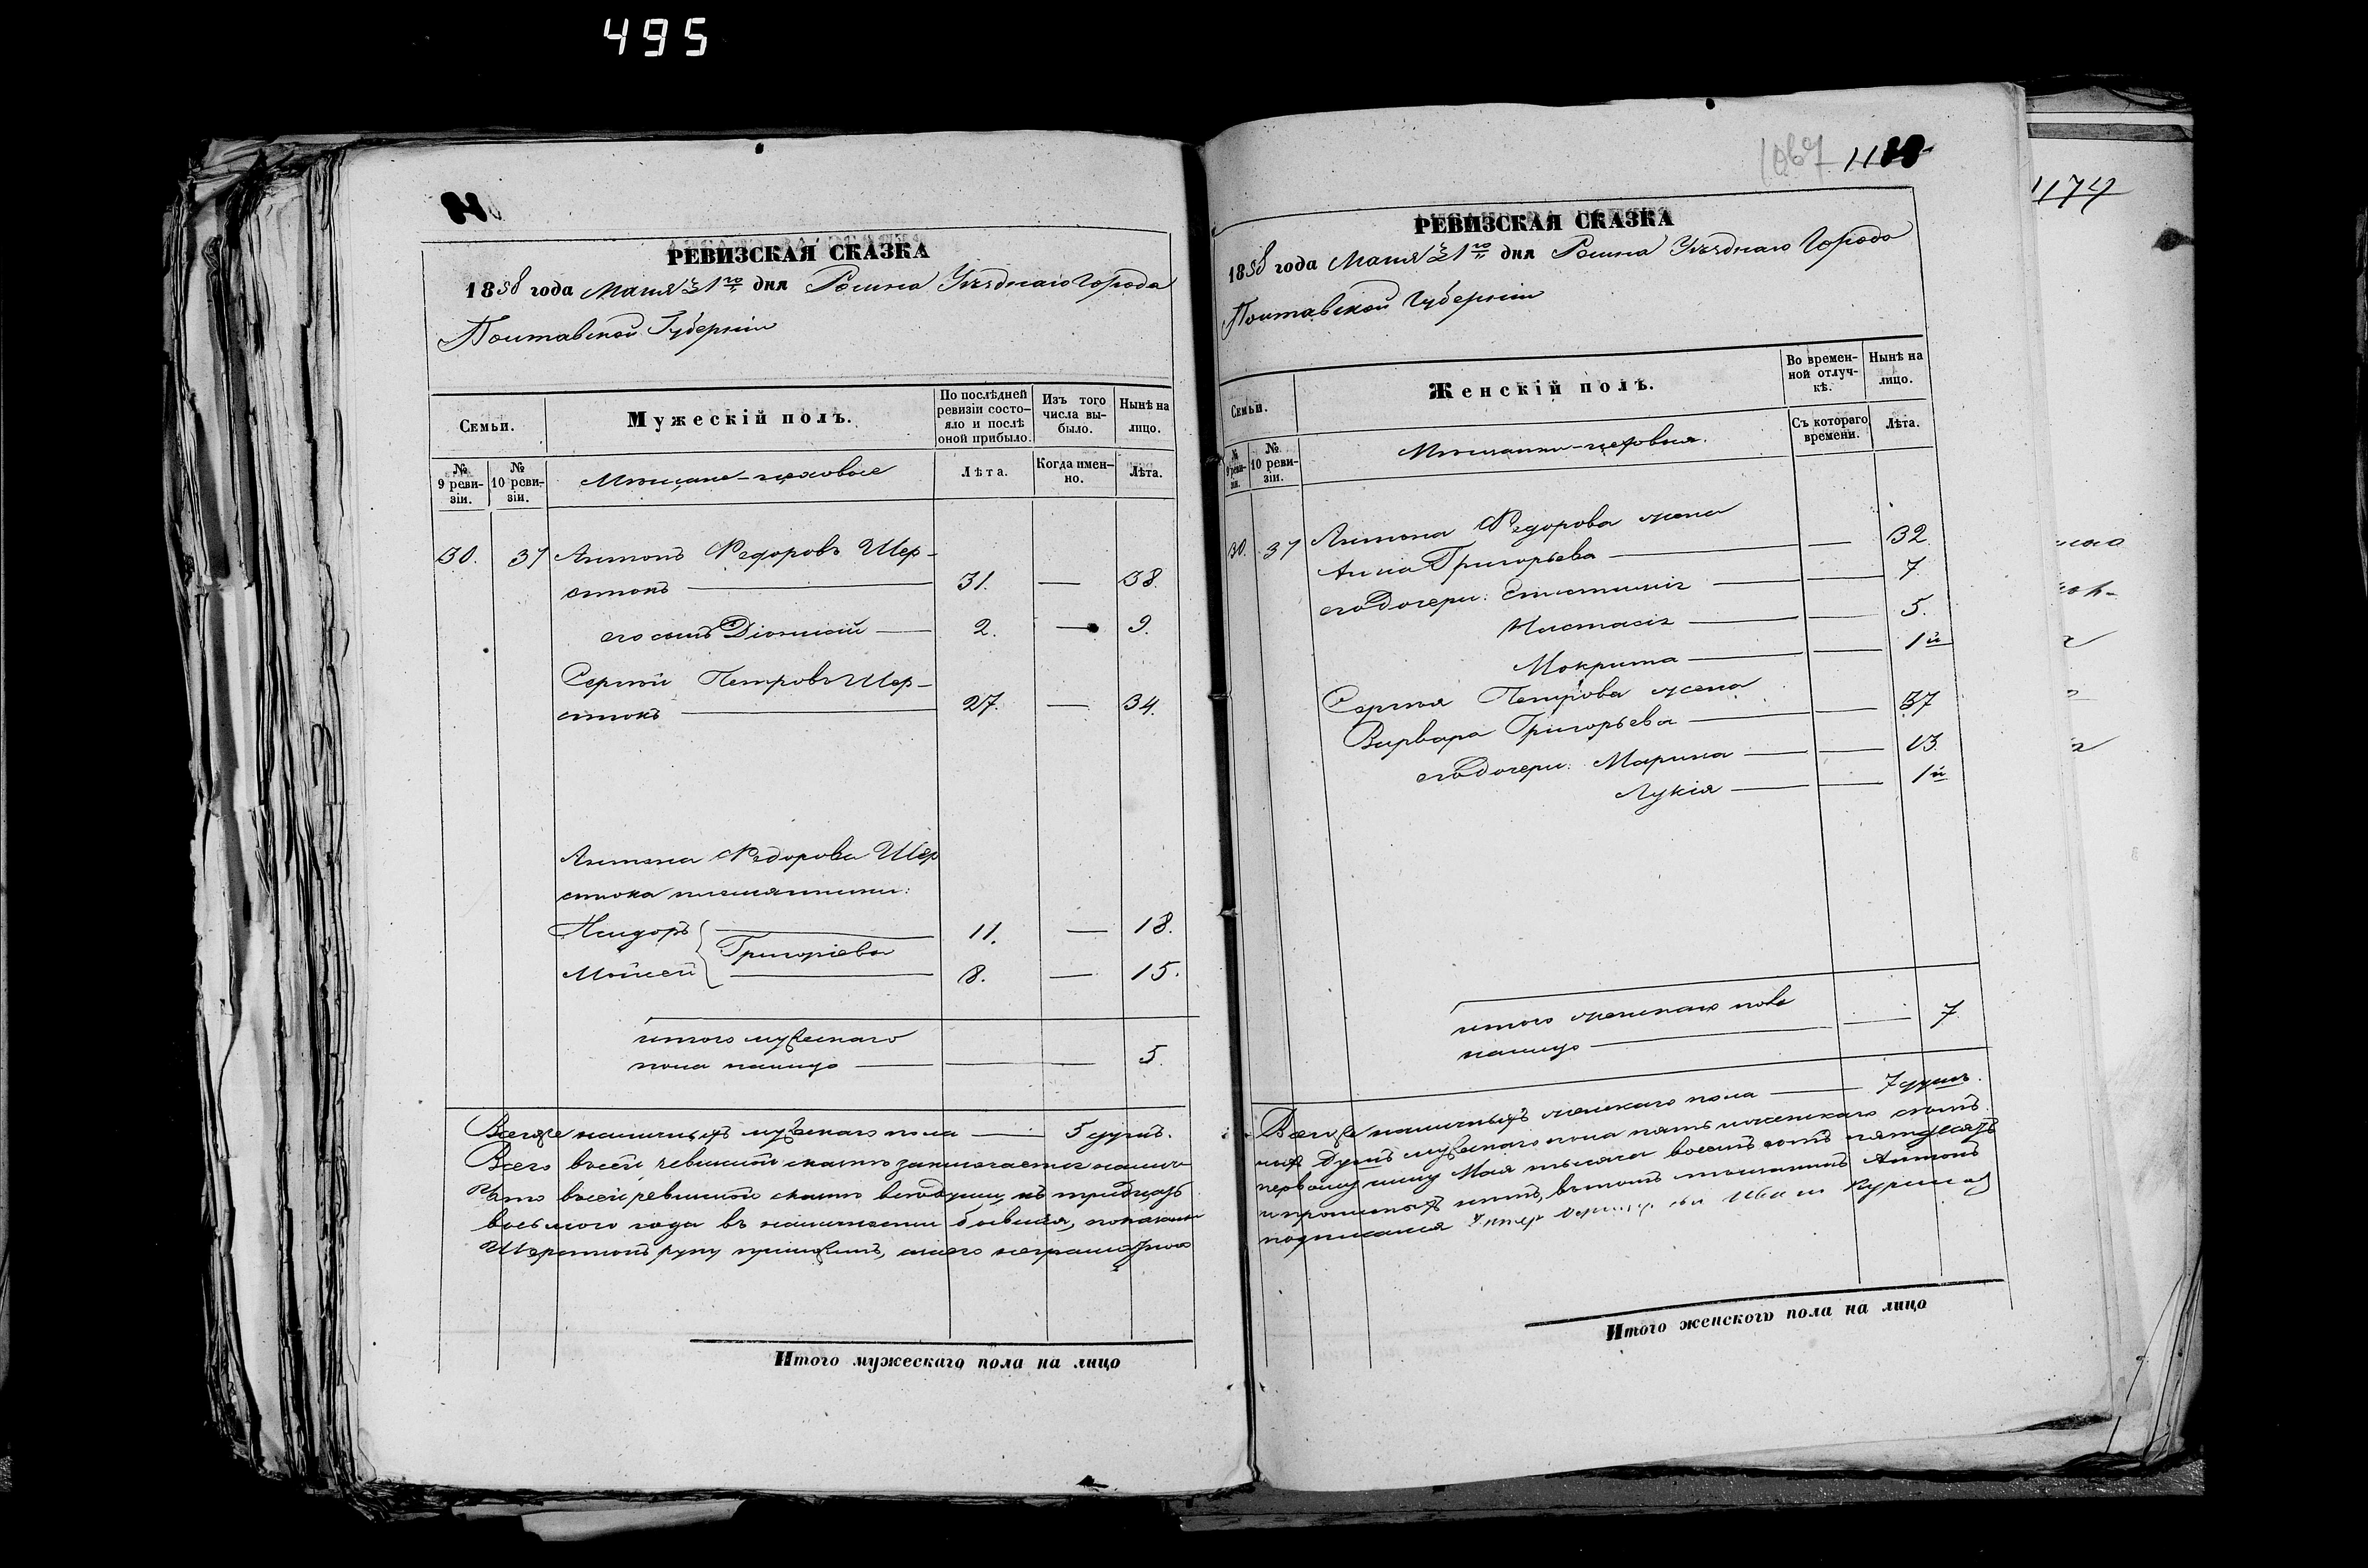 495
РЕВИЗСКАЯ СКАЗКА
1858 года Маия 31го дня Ромна Уѣзднаго Города
Полтавской Губерніи
Семьи.
Мужескій полъ.
По послѣдней ревизіи состо-
яло и послѣ
оной прибыло.
Изъ того
числа вы-
было.
Нынѣ на
лицо.
№
9 реви-
зіи.
№
10 реви-
зіи.
Мѣщане-цеховые
Лѣта.
Когда имен-
но.
Лѣта.
30. 37 Антонъ Ѳедоровъ Шер-
стюкъ 31. — 38.
его сынъ Діонисій — 2. — 9.
Сергѣй Петровъ Шер-
стюкъ 27. — 34.
Антона Ѳедорова Шер
стюка племянники:
Исидоръ 11. — 18.
Григоріевы
Мойсей 8. — 15.
итого мужескаго
пола налицо — 5.
Всего же наличныхъ мужескаго пола — 5 душъ.
Всего въ сей ревизской сказкѣ заключается налич-
Что въ сей ревизской сказкѣ всѣ души, къ
восьмого года въ наличности бывшія, показаны
Шерстюкъ руку приложилъ, а за него неграмотнаго
Итого мужескаго пола на лицо
1067 11
РЕВИЗСКАЯ СКАЗКА
1858 года Маия 31го дня Ромна Уѣзднаго Города
Полтавской Губерніи
Семьи.
Женскій полъ.
Во времен-
ной отлуч-
кѣ.
Нынѣ на
лицо.
№
9 реви-
зіи.
№
10 реви-
зіи.
Мѣщанки-цеховыя.
Съ котораго
времени.
Лѣта.
30. 37 Антона Ѳедорова жена
Анна Григорьева — 32.
его дочери: Евстафія — 7.
Настасія — 5.
Мокрина — 1й
Сергѣя Петрова жена
Варвара Григорьева — 37
его дочери: Марина — 13.
Лукія — 1й
итого женскаго пола
налицо — 7
Всего же наличныхъ женскаго пола — 7 душъ.
ныхъ душъ мужескаго пола пять и женскаго семь
первому числу Мая тысяча восемь сотъ пятдесятъ
и прописныхъ нѣтъ, въ томъ мѣщанинъ Антонъ
подписался Иванъ
Итого женскаго пола на лицо
1174